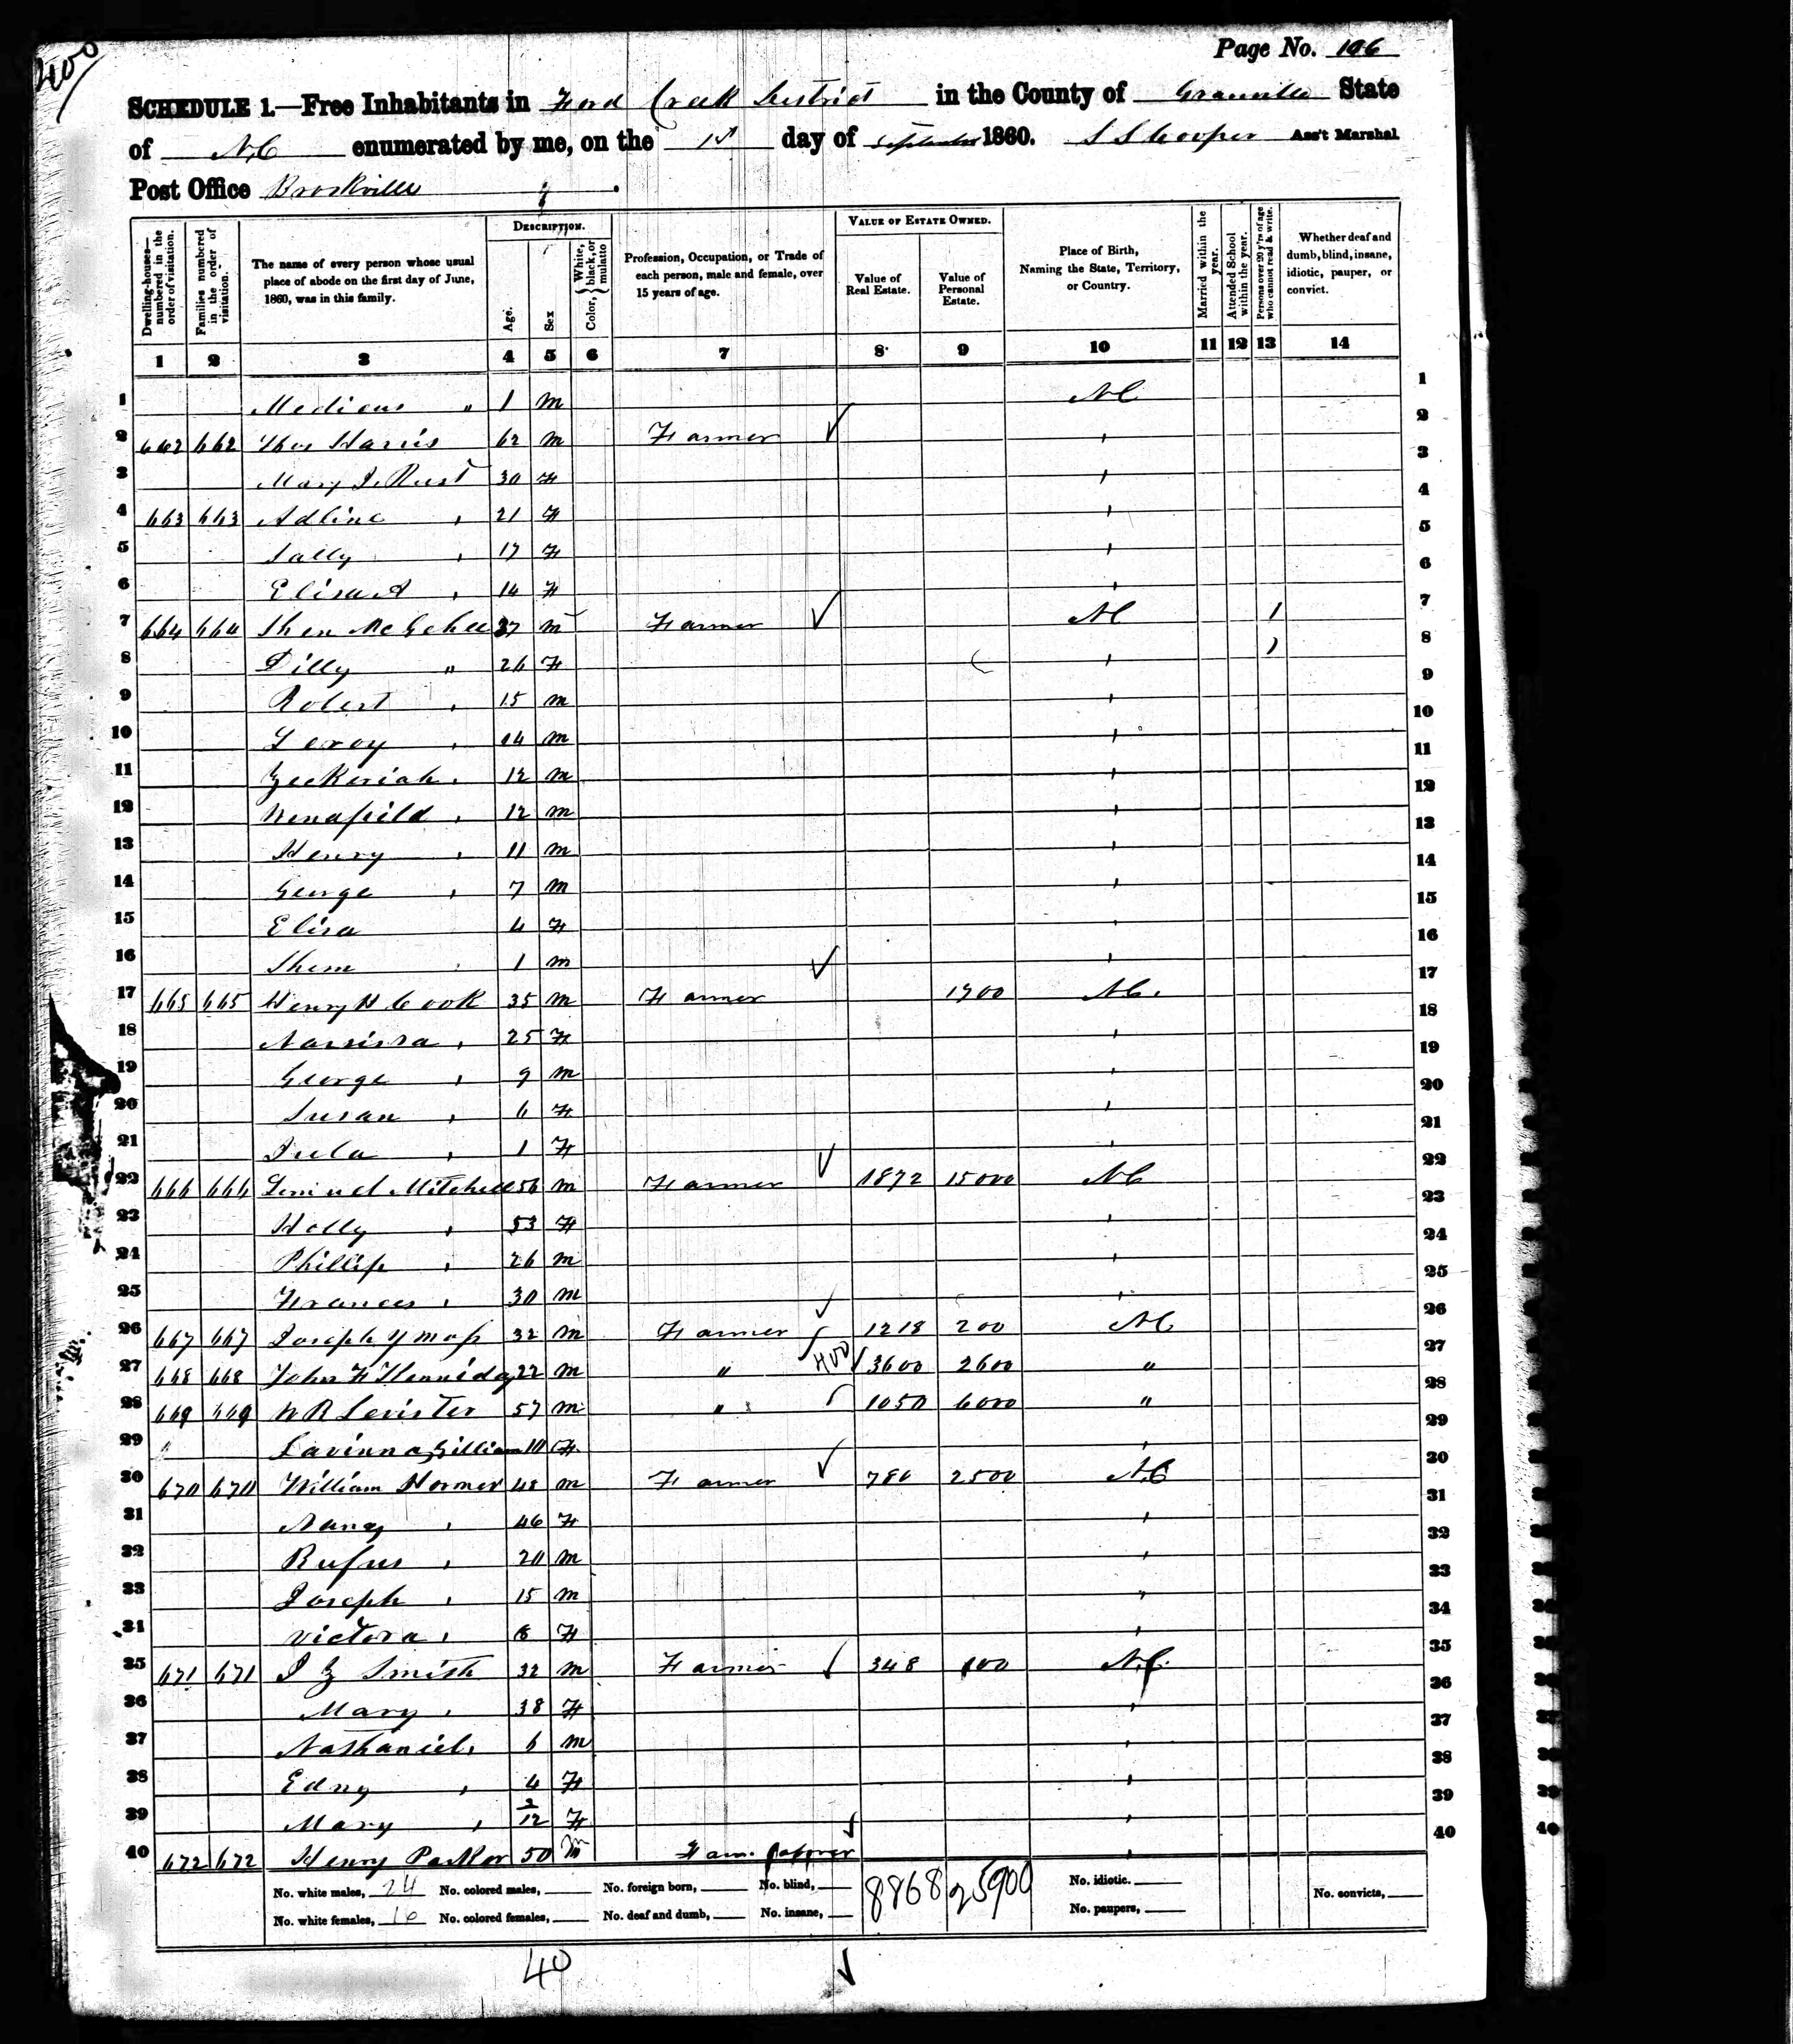 400
Page No. 106
SCHEDULE 1.—Free Inhabitants in Ford Creek District in the County of Granville State
of N,C enumerated by me, on the 1st day of September 1860. S S Cooper Ass't Marshal
Post Office Brookville
Dwelling-houses—numbered in the order of visitation. Families numbered in the order of visitation. The name of every person whose usual place of abode on the first day of June, 1860, was in this family. DESCRIPTION. Age. Sex Color, {White, black, or mulatto Profession, Occupation, or Trade of each person, male and female, over 15 years of age. VALUE OF ESTATE OWNED. Value of Real Estate. Value of Personal Estate. Place of Birth, Naming the State, Territory, or Country. Married within the year. Attended School within the year. Persons over 20 y'rs of age who cannot read & write. Whether deaf and dumb, blind, insane, idiotic, pauper, or convict.
1 2 3 4 5 6 7 8 9 10 11 12 13 14
1 Medicus " 1 m NC 1
2 662 662 Thos Harris 62 m Farmer ✓ ' 2
3 Mary J. Rust 30 F ' 3
4 663 663 Adline ' 21 F ' 4
5 Sally ' 17 F ' 5
6 Elisa A ' 14 F ' 6
7 664 664 Shem McGehee 37 m Farmer ✓ NC / 7
8 Dilly " 26 F ' / 8
9 Robert ' 15 m ' 9
10 Leroy ' 14 m ' 10
11 Zeckeriah ' 12 m ' 11
12 Wenafield ' 12 m ' 12
13 Henry ' 11 m ' 13
14 George ' 7 m ' 14
15 Elisa 4 F ' 15
16 Shem ' 1 m ✓ ' 16
17 665 665 Henry H Cook 35 m Farmer 1900 NC. 17
18 Narsissa ' 25 F ' 18
19 George ' 9 m ' 19
20 Susan ' 6 F ' 20
21 Jula ' 1 F ' 21
22 666 666 Lemuel Mitchell 56 m Farmer ✓ 1872 15000 NC 22
23 Holly ' 53 F ' 23
24 Phillip ' 26 m ' 24
25 Frances ' 30 m ' 25
26 667 667 Joseph Y Moss 32 m Farmer ✓ 1218 200 NC 26
27 668 668 John F Hennidy 22 m " 400 ✓ 3600 2600 " 27
28 669 669 W R Levister 57 m " 1050 6000 " 28
29 Lavinna Gilliam 10 F ' 29
30 670 670 William Hormer 48 m Farmer ✓ 780 2500 NC 30
31 Nancy ' 46 F ' 31
32 Rufus ' 20 m ' 32
33 Joseph ' 15 m " 33
34 Victora ' 8 F ' 34
35 671 671 J Z Smith 32 m Farmer ✓ 348 100 N,C. 35
36 Mary ' 38 F ' 36
37 Nathaniel ' 6 m ' 37
38 Edny ' 4 F ' 38
39 Mary ' 3/12 F ' 39
40 672 672 Henry Parker 50 m ✓ ' 40
No. white males, 24 No. colored males, No. foreign born, No. blind, 8868 25900 No. idiotic. No. convicts,
No. white females, 16 No. colored females, No. deaf and dumb, No. insane, No. paupers,
40 ✓